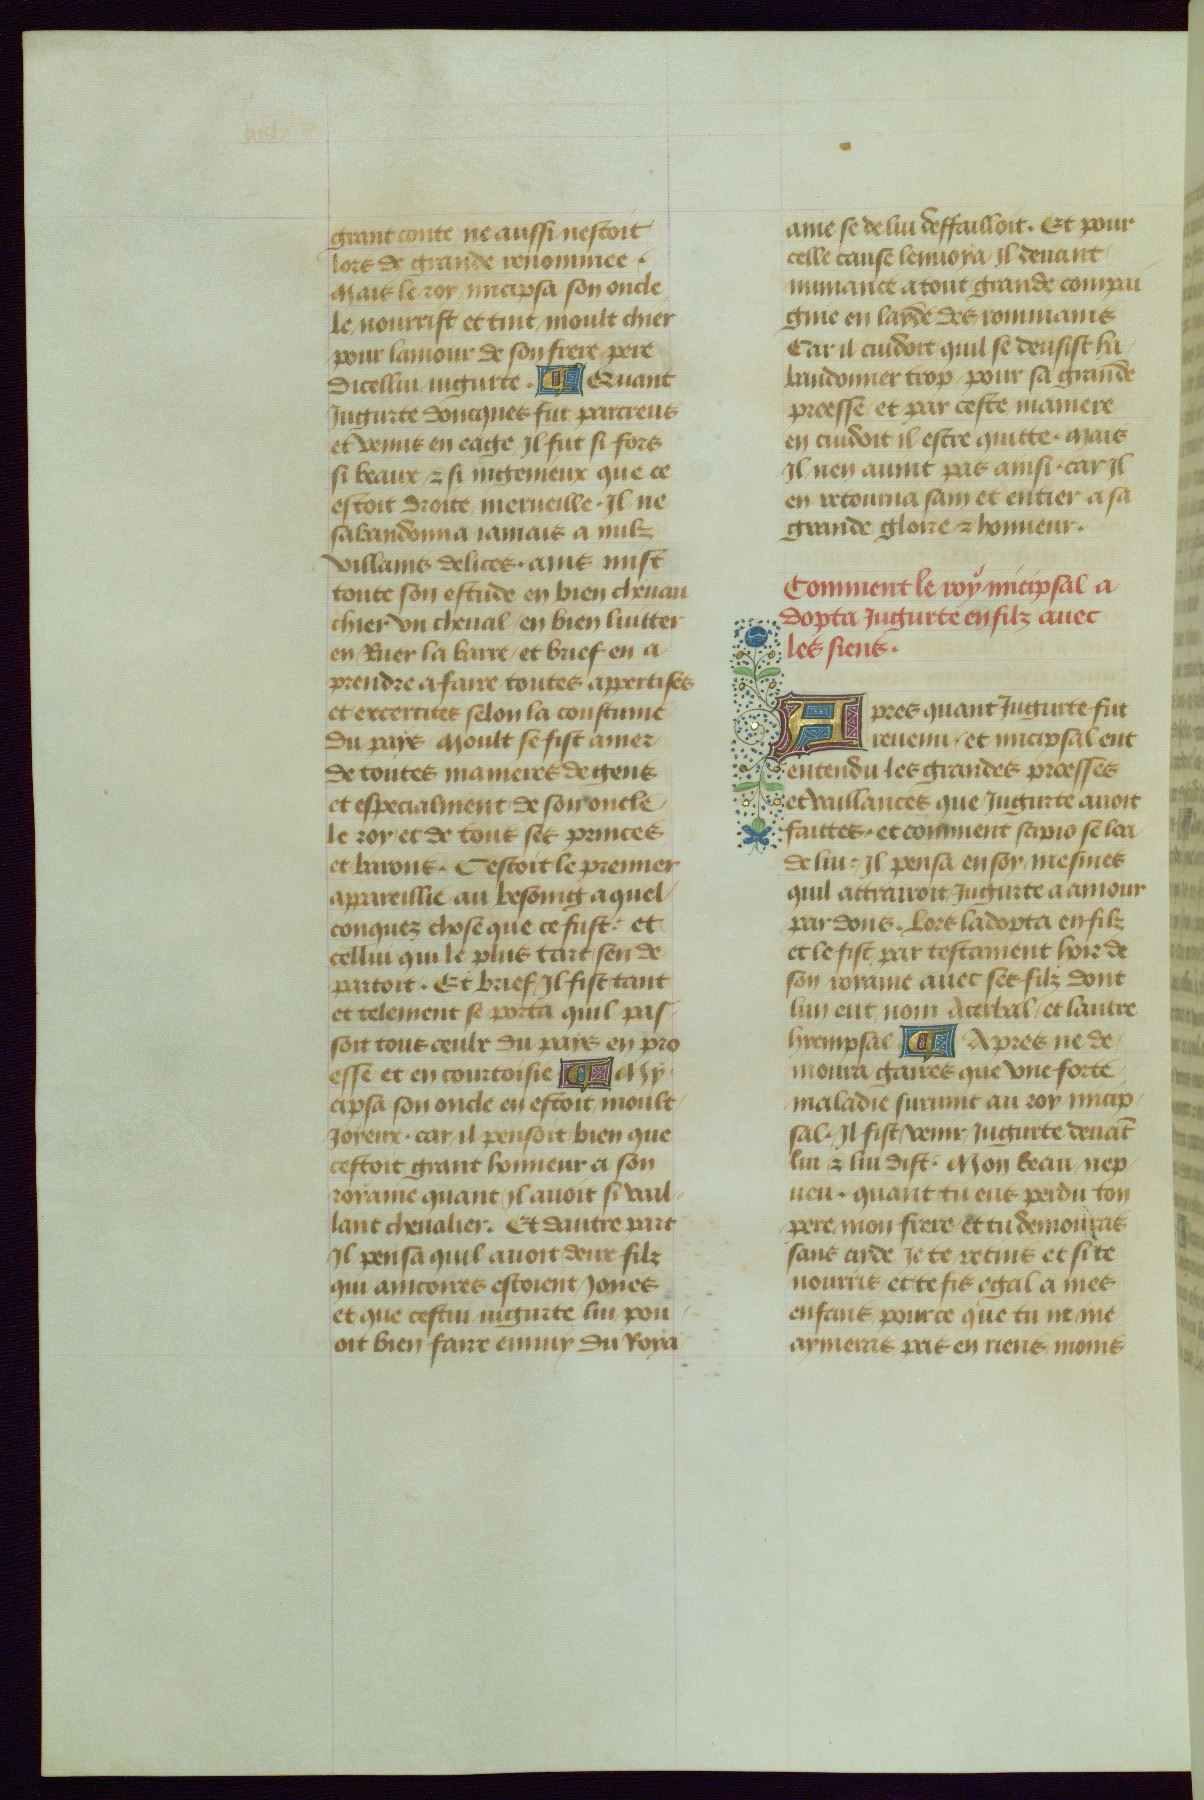 grant conte ne aussi nestoit
lors de grande renommee.
Mais le roy micipsa son oncle
le nourrist et tint moult chier
pour lamour de son frere pere
dicellui iugurte. Quant
Jugurte doncques fut parcreus
et venus en eage Il fut si fors
si beaux ⁊ si ingenieux que ce
estoit droite merueille. Il ne
sabandonna iamais a nulz
villains delices. ains mist
toute son estude en bien cheuau
chier vn cheual en bien luitter
en Ruer la barre et brief en a
prendre a faire toutes appertises
et excercites selon la coustume
du pays Moult se fist amer
de toutes manieres de gens
et especialment de son oncle
le roy et de tous ses princes
et barons. Cestoit le premier
appareillie au besoing a quel
conquez chose que ce fust. et
cellui qui le plus tart sen de
partoit. Et brief Il fist tant
et telement se porta quil pas
soit tous ceulx du pays en pro
esse et en courtoisie My
cipsa son oncle en estoit moult
Joyeux. car il pensoit bien que
cestoit grant honneur a son
royaume quant il auoit si vail
lant cheualier. Et dautre part
Il pensa quil auoit deux filz
qui ancores estoient Jones
et que cestui iugurte lui pou
oit bien faire ennuy du Roya
ame se de lui deffailloit. Et pour
celle cause lenuoya Il deuant
numance a tout grande compai
gnie en layde des rommains
Car il cuidoit quil se deusist ha
bandonner trop pour sa grande
proesse et par ceste maniere
en cuidoit il estre quitte. Mais
Il nen auint pas ainsi. car Il
en retourna sain et entier a sa
grande gloire ⁊ honneur.
Comment le roy micipsal a
dopta Jugurte en filz auec
les siens.
Apres quant Jugurte fut
reuenu et micipsal eut
entendu les grandes proesses
et vaillances que Jugurte auoit
faittes. et comment scipio se loa
de lui. Il pensa en soy mesmes
quil attrairoit Jugurte a amour
par dons. Lors ladopta en filz
et le fist par testament hoir de
son royaume auec ses filz dont
lun eut nom Aterbal et lautre
hyempsal Apres ne de
moura gaires que vne forte
maladie suruint au roy micip
sal. Il fist venir Jugurte deuāt
lui ⁊ lui dist. Mon beau nep
ueu. quant tu eus perdu ton
pere mon frere et tu demouras
sans ayde Je te retins et si te
nourris et te fis egal a mes
enfans pource que tu ne me
aymeras pas en riens moins